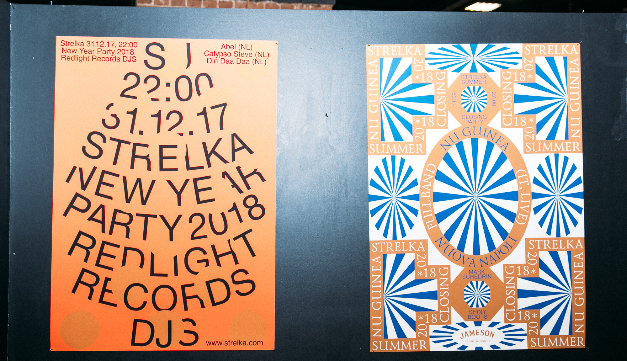 Strelka 31.12.17, 22:00
New Year Party 2018
Redlight Records DJS
Abel (NL)
Calypso Steve (NL)
Din Daa Daa (NL)
22:00
31.12.17
STRELKA
NEW YEAR
PARTY 2018
REDLIGHT
RECORDS
DJS
www.strelka.com
STRELKA
NU GUINEA
SUMMER
2018
CLOSING
STRELKA
SUMMER
CLOSING
PARTY
STRELKA
NU GUINEA
SUMMER
2018
CLOSING
NU GUINEA
(IT, LIVE)
NUOVA NAPOLI
FULL BAND
STRELKA
NU GUINEA
SUMMER
2018
CLOSING
STRELKA
NU GUINEA
SUMMER
2018
CLOSING
JAMESON